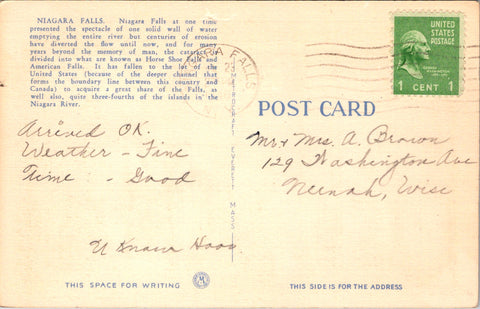 NIAGARA FALLS. Niagara Falls at one time
presented the spectacle of one solid wall of water
emptying the entire river but centuries of erosion
have diverted the flow until now, and for many
years beyond the memory of man, the cataract
divided into what are known as Horse Shoe Falls and
American Falls. It has fallen to the lot of the
United States (because of the deeper channel that
forms the boundary line between this country and
Canada) to acquire a great share of the Falls, as
well also, quite three-fourths of the islands in the
Niagara River.
Arrived OK.
Weather - Fine
Time - Good
U Knaw Hoo
THIS SPACE FOR WRITING
METROCRAFT, EVERETT, MASS.
FALLS
UNITED
STATES
POSTAGE
1 CENT 1
POST CARD
Mr & Mrs. A. Brown
129 Washington Ave
Neenah, Wisc
THIS SIDE IS FOR THE ADDRESS